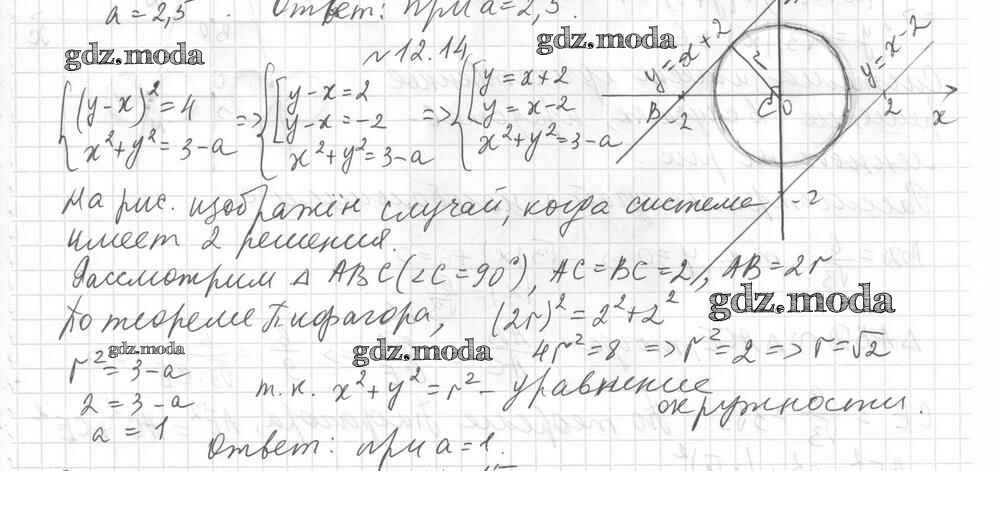 a = 2,5 . Ответ: при a = 2,5.
gdz.moda
№12.14
gdz.moda
{(y-x)² = 4
x²+y² = 3-a
=> {[y-x=2
y-x=-2
x²+y²=3-a
=> {[y=x+2
y=x-2
x²+y²=3-a
y=x+2
r
y=x-2
B
-2
C
0
2
x
-2
На рис. изображён случай, когда система
имеет 2 решения.
Рассмотрим △ ABC (∠C=90°), AC=BC=2, AB=2r
gdz.moda
По теореме Пифагора, (2r)²=2²+2²
gdz.moda
gdz.moda
4r²=8 => r²=2 => r=√2
r²=3-a
т.к. x²+y²=r² - уравнение
окружности.
2=3-a
a = 1
Ответ: при a=1.